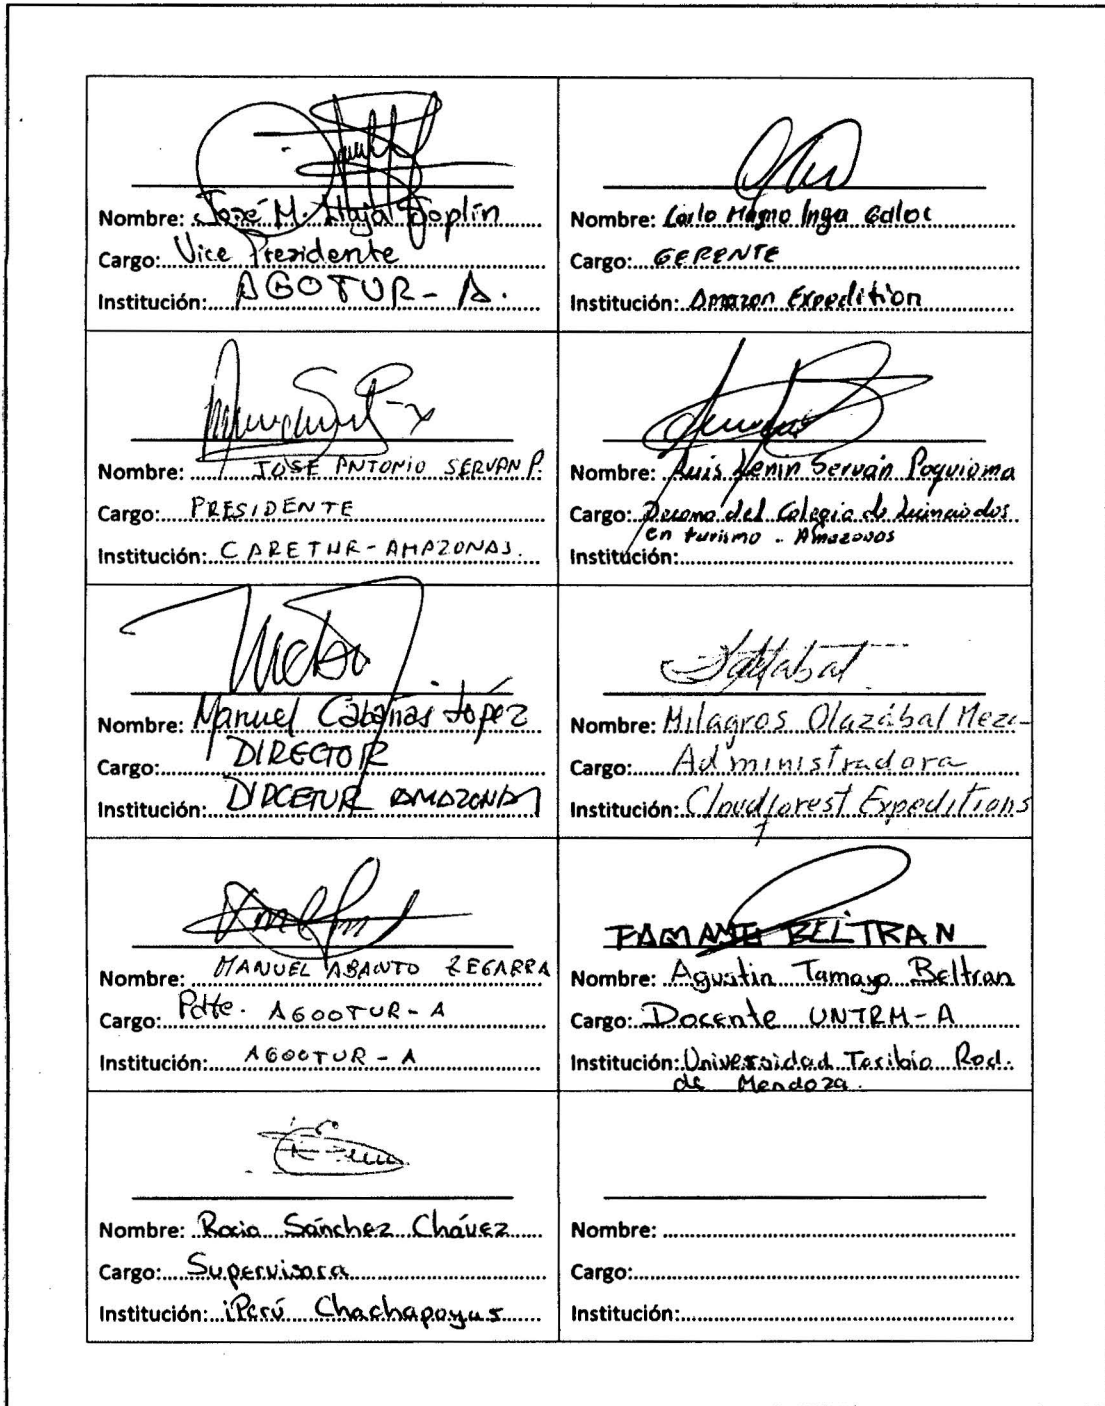 Nombre: José M. Joplín
Cargo: Vice Presidente
Institución: AGOTUR-A.
Nombre: Carlo Magno Inga Galoc
Cargo: GERENTE
Institución: Amazon Expedition
Nombre: JOSE ANTONIO SERVAN P.
Cargo: PRESIDENTE
Institución: CARETUR-AMAZONAS.
Nombre: Luis Lenin Servan Poquioma
Cargo: Decano del Colegio de
en turismo - Amazonas
Institución:
Nombre: Manuel Cabañas López
Cargo: DIRECTOR
Institución: DIRCETUR AMAZONAS
Nombre: Milagros Olazábal
Cargo: Administradora
Institución: Cloudforest Expeditions
Nombre: MANUEL ABANTO ZEGARRA
Cargo: Pdte. AGOOTUR-A
Institución: AGOOTUR-A
TAMAYO BELTRAN
Nombre: Agustin Tamayo Beltran
Cargo: Docente UNTRM-A
Institución: Universidad Toribio Rod.
de Mendoza.
Nombre: Rocio Sánchez Chávez
Cargo: Supervisora
Institución: iPerú Chachapoyas
Nombre:
Cargo:
Institución: